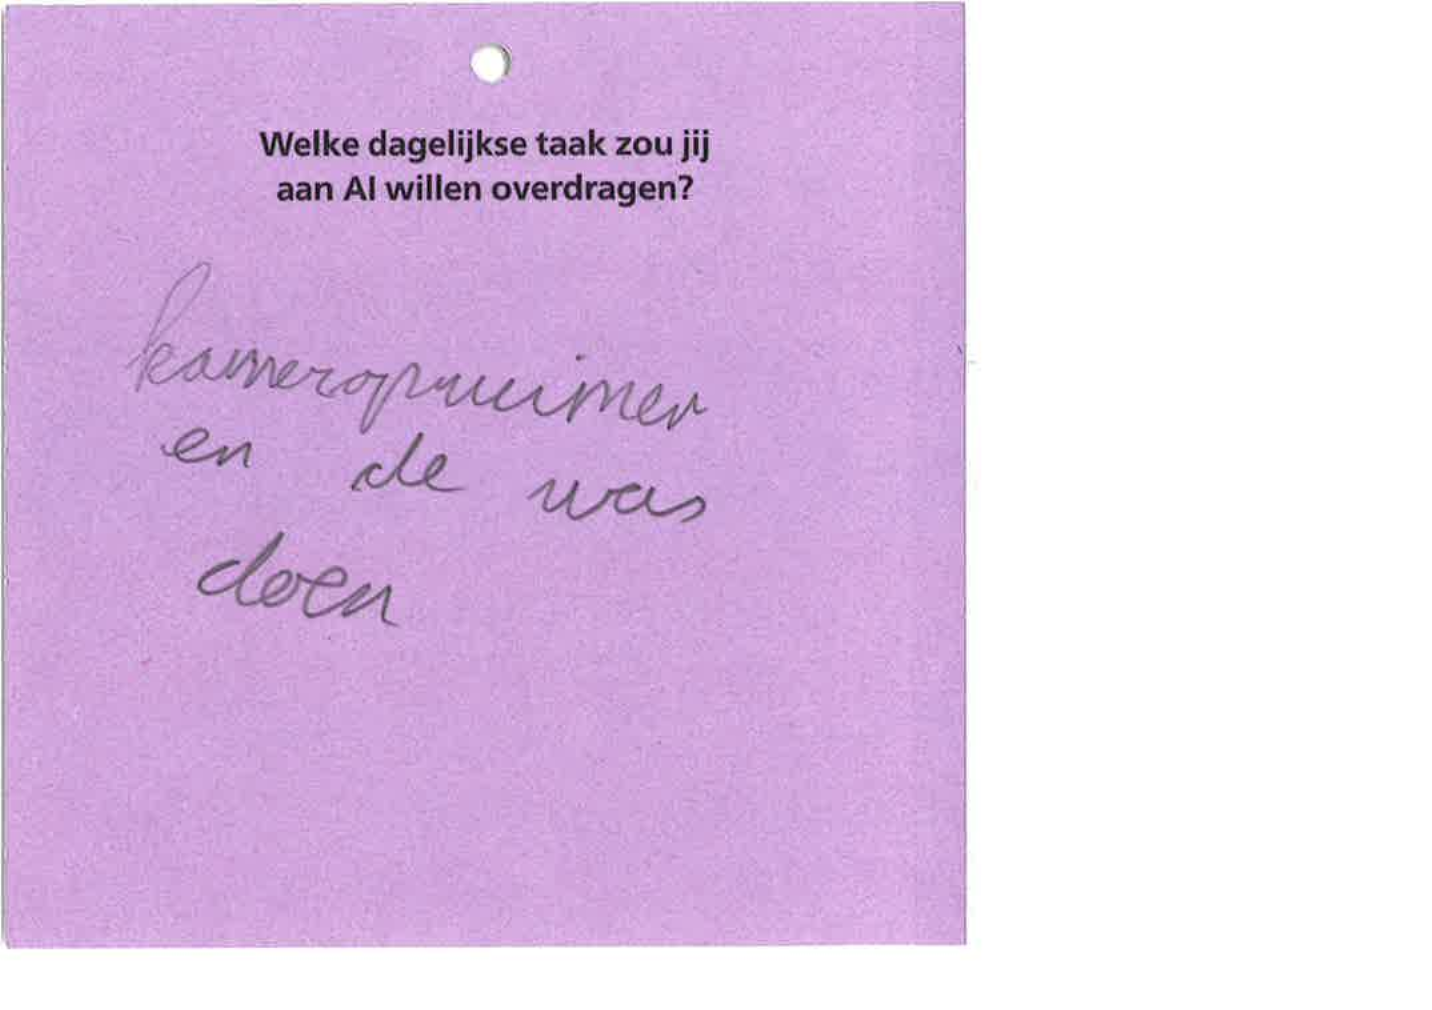 Welke dagelijkse taak zou jij
aan AI willen overdragen?
kameropruimer
en de was
doen